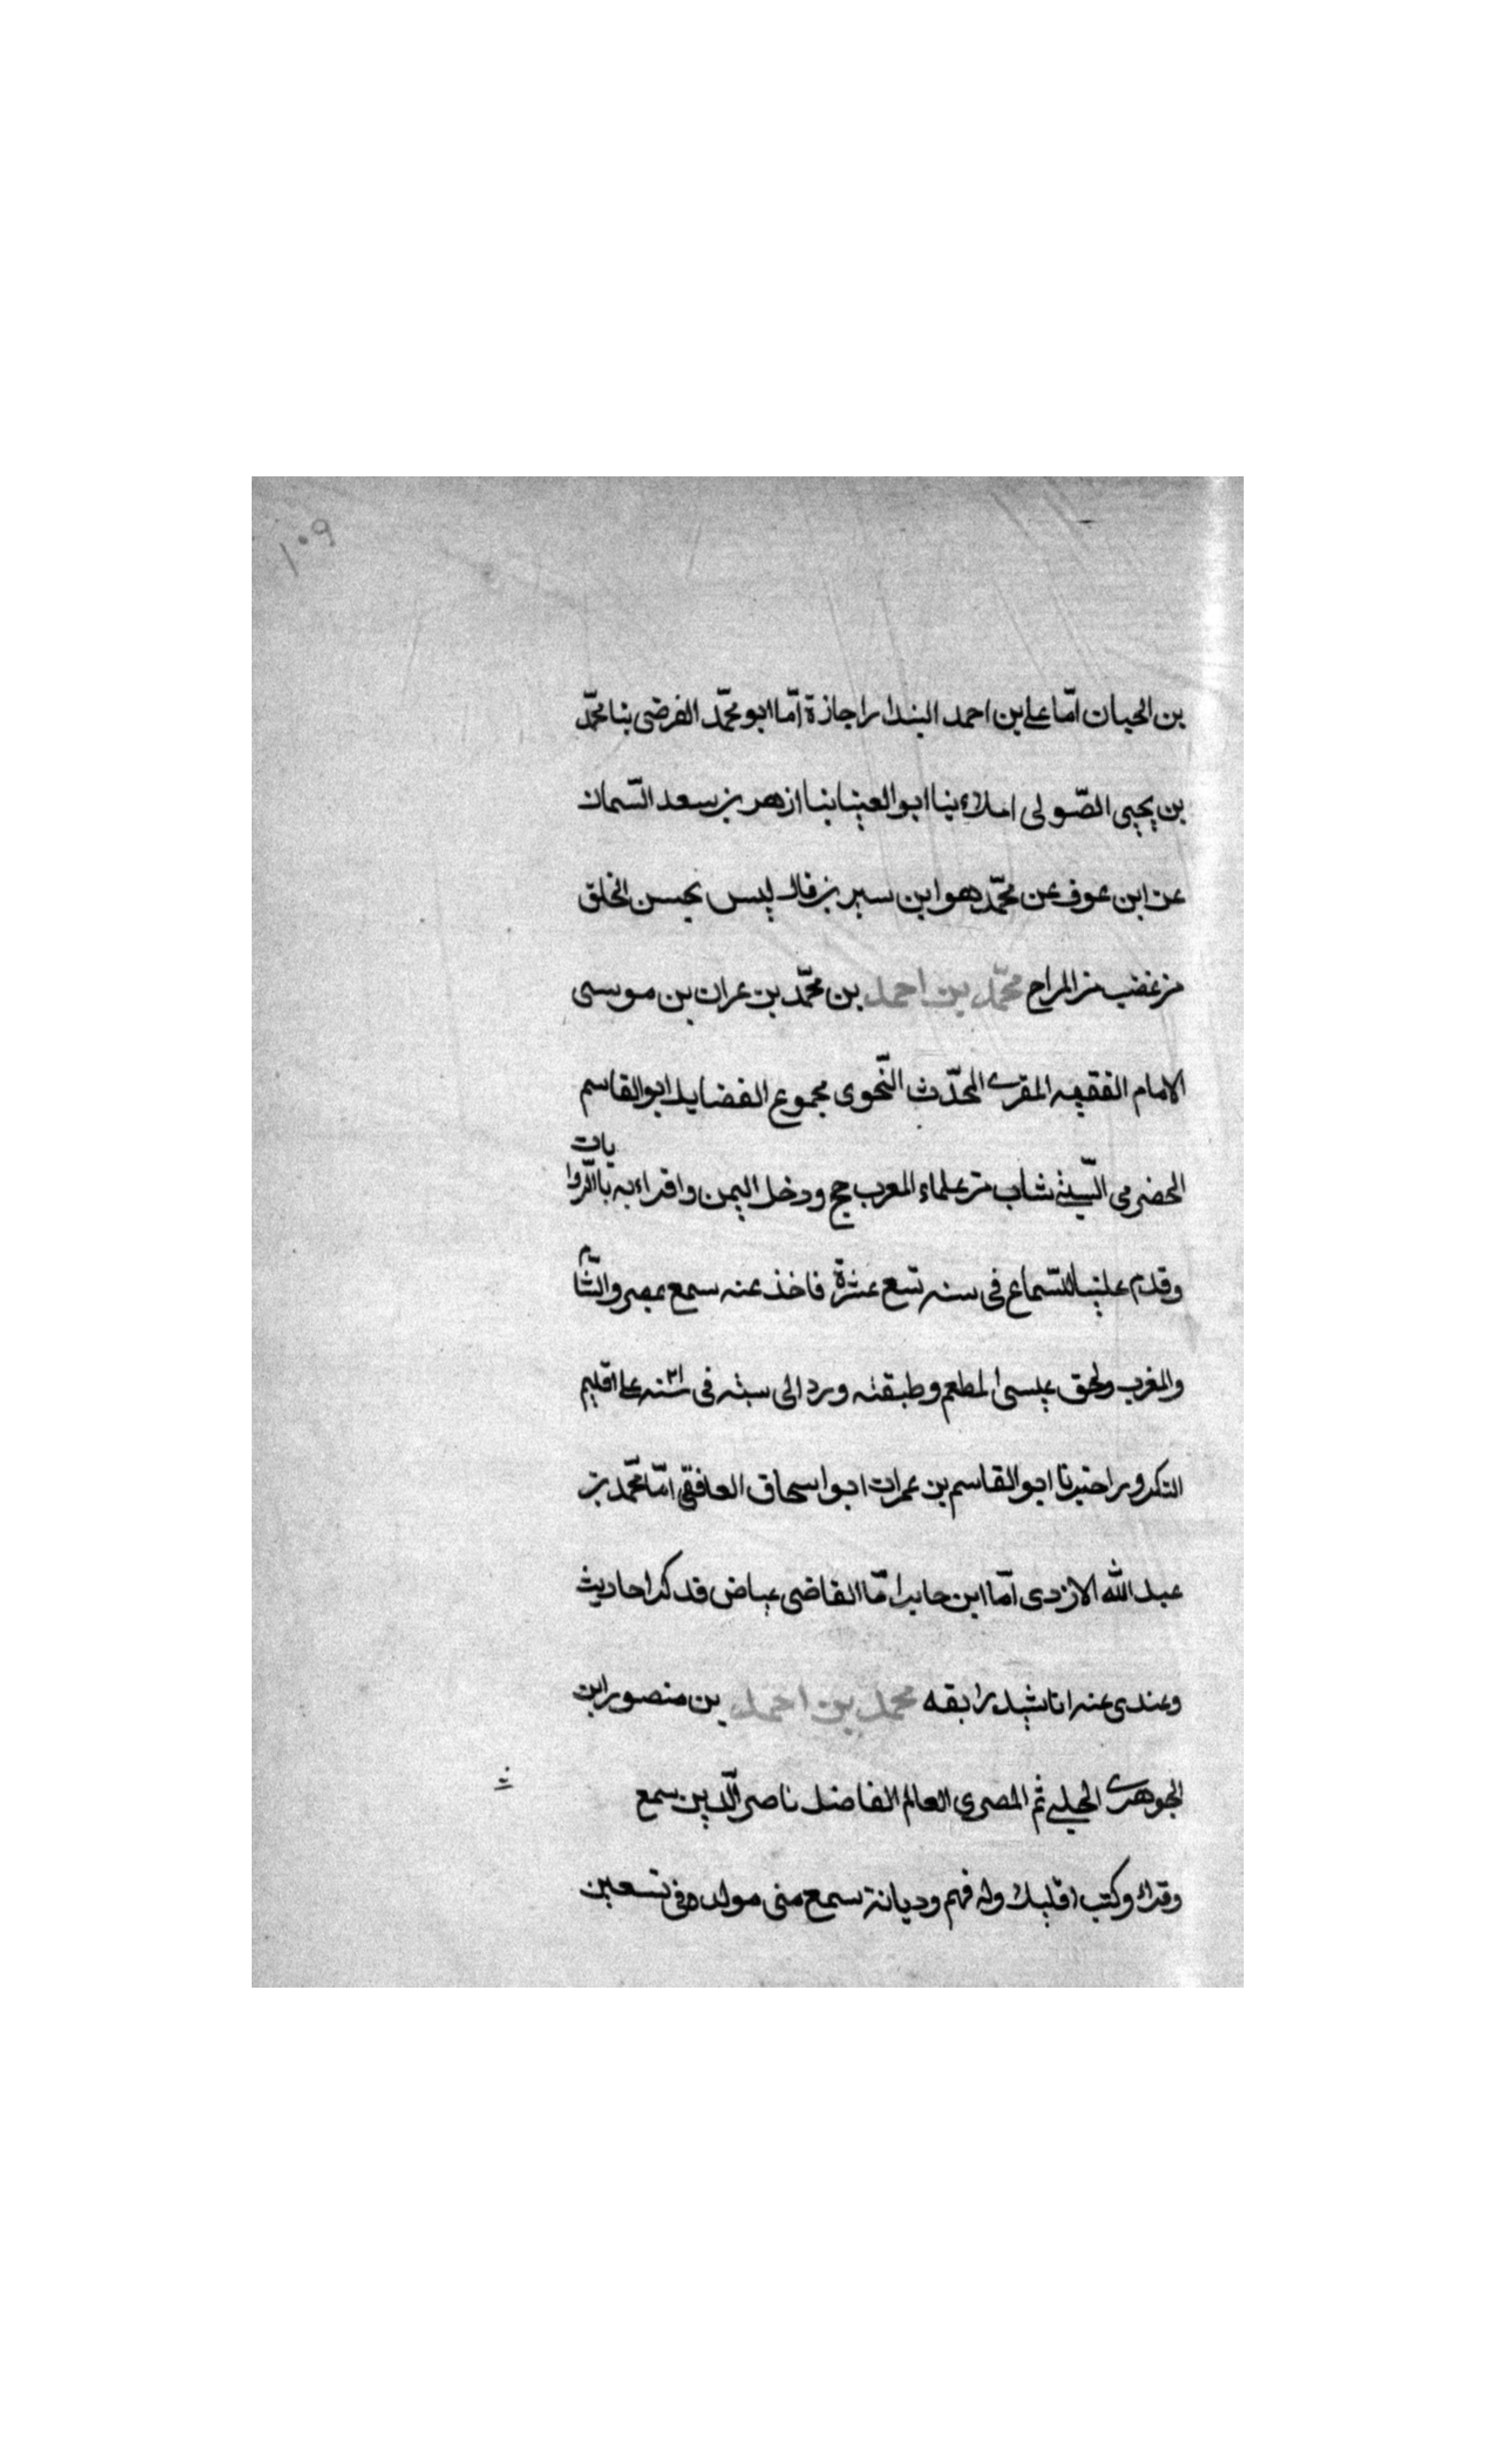 ١٠٩
بن الحيان امّا على بن احمد البندار اجازة امّا ابو محمّد الفرضى بنا محمّد
بن يحيى الصّولى املاء بنا ابو العينا بنا ازهر بن سعد السّمان
عن ابن عوف عن محمّد هو ابن سيرين قال ليس بحسن الخلق
من غضب من المراح محمّد بن احمد بن محمّد بن عمران بن موسى
الامام الفقيه المقرى المحدّث النّحوى مجموع الفضايل ابو القاسم
الحضرمى السّبتى شاب من علماء المعرب حج ودخل اليمن واقراء به بالرّوايات
وقدم علينا للسّماع فى سنه تسع عشرة فاخذ عنه سمع بمصر والشّام
والمغرب ولحق عيسى المطعم وطبقته ورد الى سبته فى سنه على اقليم
التكرور اخبرنا ابو القاسم بن عمران ابو اسحاق العافقى امّا محمّد بن
عبد الله الازدى امّا ابن جابر امّا القاضى عياض فذكر احاديث
وعندى عنه اناشيد رابقه محمد بن احمد بن منصور ابن
الجوهرى الحلبى ثم المصرى العالم الفاضل ناصر الّدين سمع
وقراء وكتب قليلا وله فهم وديانة سمع منى مولده فى تسعين